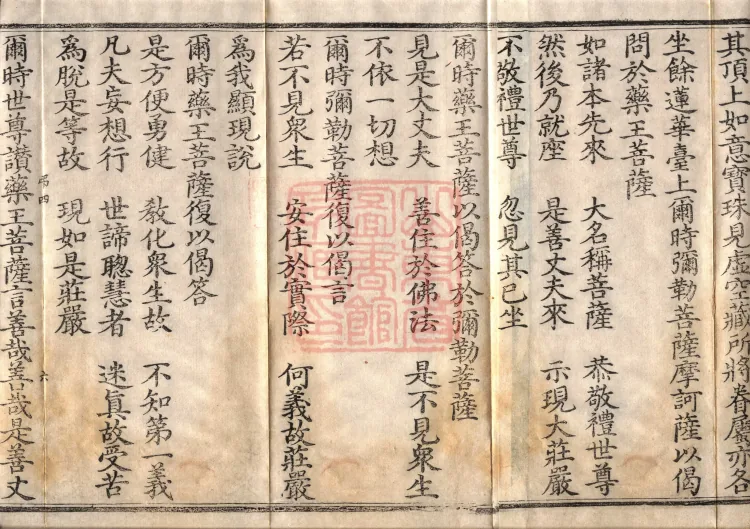 其頂上如意寶珠見虛空藏所將眷屬亦各
坐餘蓮華臺上爾時彌勒菩薩摩訶薩以偈
問於藥王菩薩
如諸本先來　大名稱菩薩　恭敬禮世尊
然後乃就座　是善丈夫來　示現大莊嚴
不敬禮世尊　忽見其已坐
爾時藥王菩薩以偈答於彌勒菩薩
見是大丈夫　善住於佛法　是不見衆生
不依一切想
爾時彌勒菩薩復以偈言
若不見衆生　安住於實際　何義故莊嚴
爲我顯現說
爾時藥王菩薩復以偈答
是方便勇健　敎化衆生故　不知第一義
凡夫妄想行　世諦聰慧者　迷眞故受苦
爲脫是等故　現如是莊嚴
爾時世尊讃藥王菩薩言善哉善哉是善丈